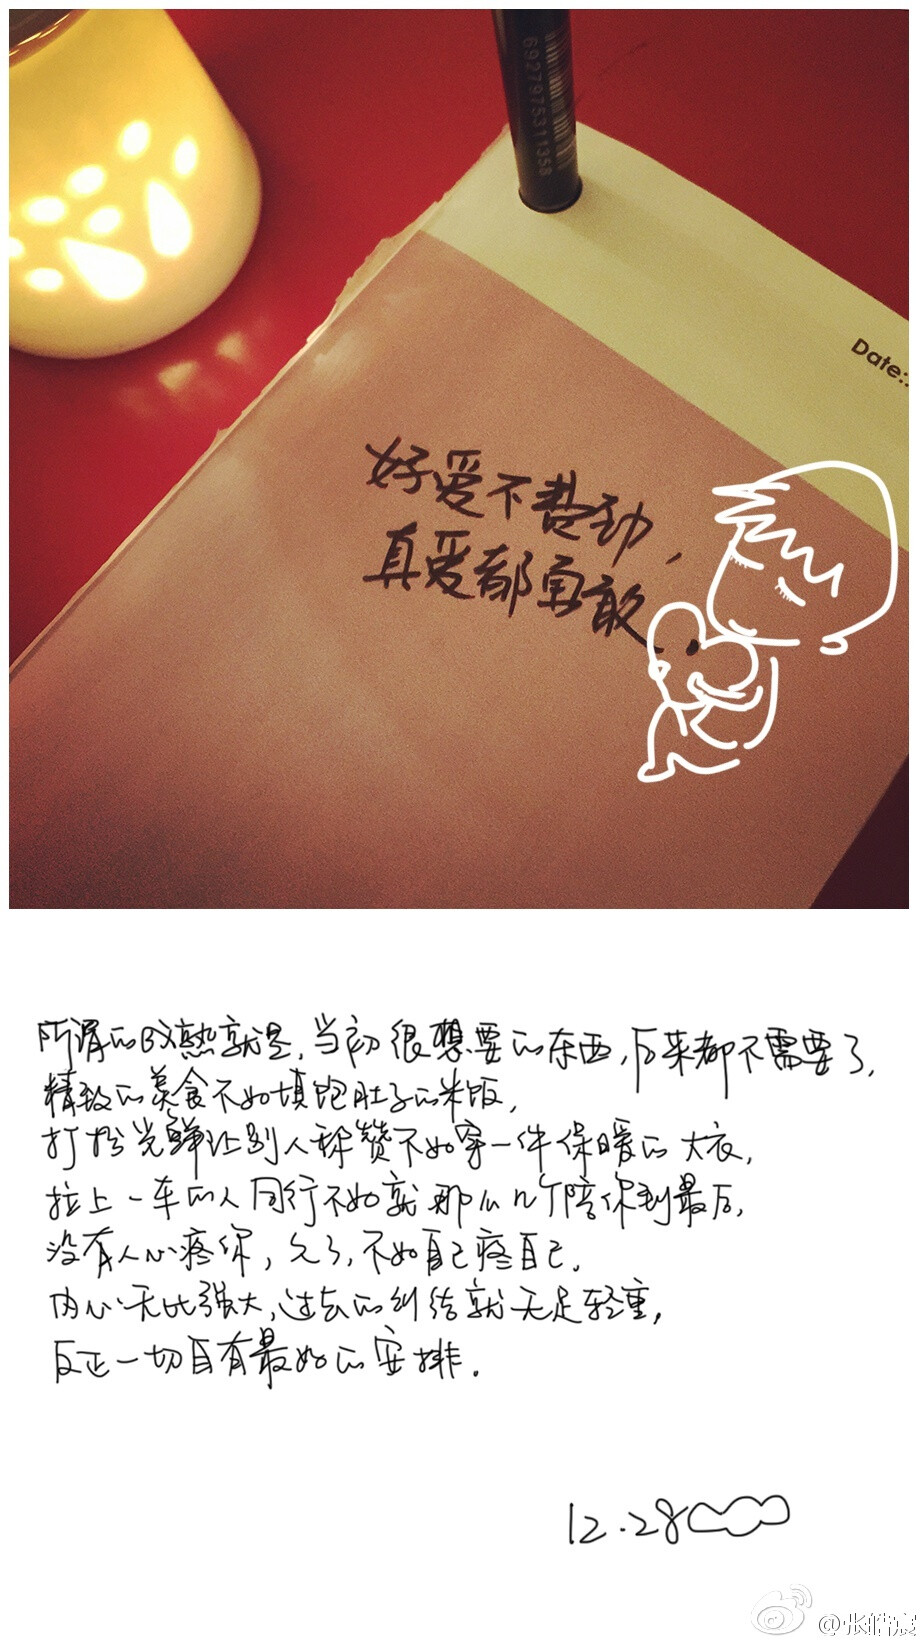 6927975311358
Date:
好爱不费劲，
真爱都勇敢
所谓的成熟就是，当初很想要的东西，后来都不需要了，
精致的美食不如填饱肚子的米饭，
打扮光鲜让别人称赞不如穿一件保暖的大衣，
拉上一车的人同行不如就那么几个陪你到最后，
没有人心疼你，久了，不如自己疼自己。
内心无比强大，过去的纠结就无足轻重，
反正一切自有最好的安排。
12.28
@张皓宸